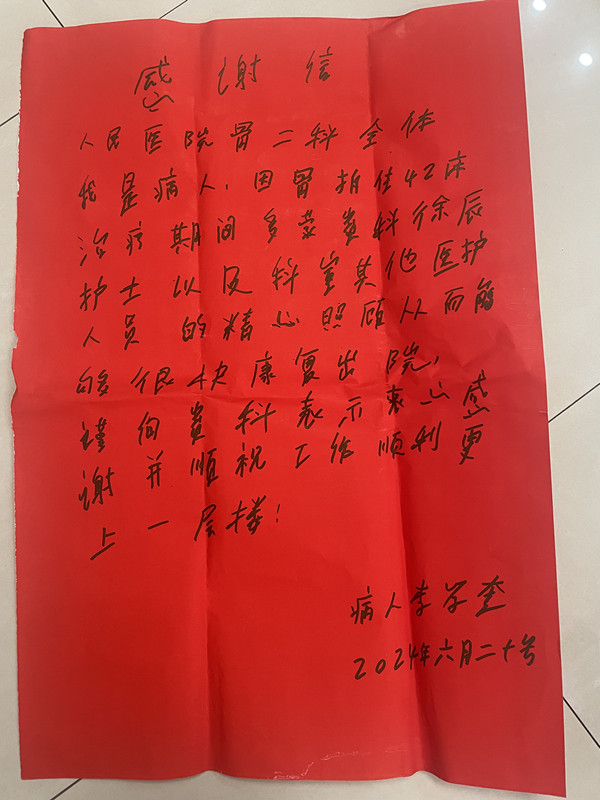 感谢信
人民医院骨二科全体
我是病人，因骨折住42床
治疗期间多蒙贵科徐辰
护士以及科室其他医护
人员的精心照顾从而能
够很快康复出院，
谨向贵科表示衷心感
谢并顺祝工作顺利更
上一层楼！
病人李学奎
2024年六月二十号